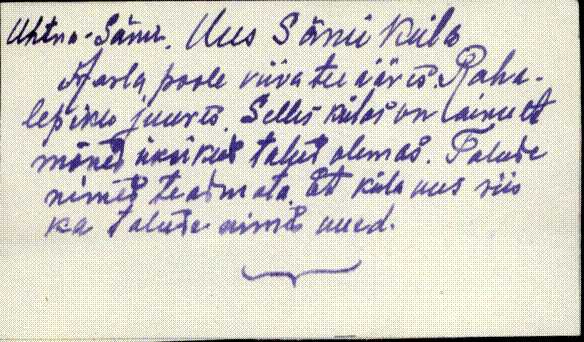 Uhtna-Sämi. Uus Sämi küla
Aasla poole viiva tee ääres. Raha-
lepiku juures. Selles külas on ainult
mõned üksikud talud olemas. Talude
nimed teadmata. Et küla uus siis
ka talude nimed uued.